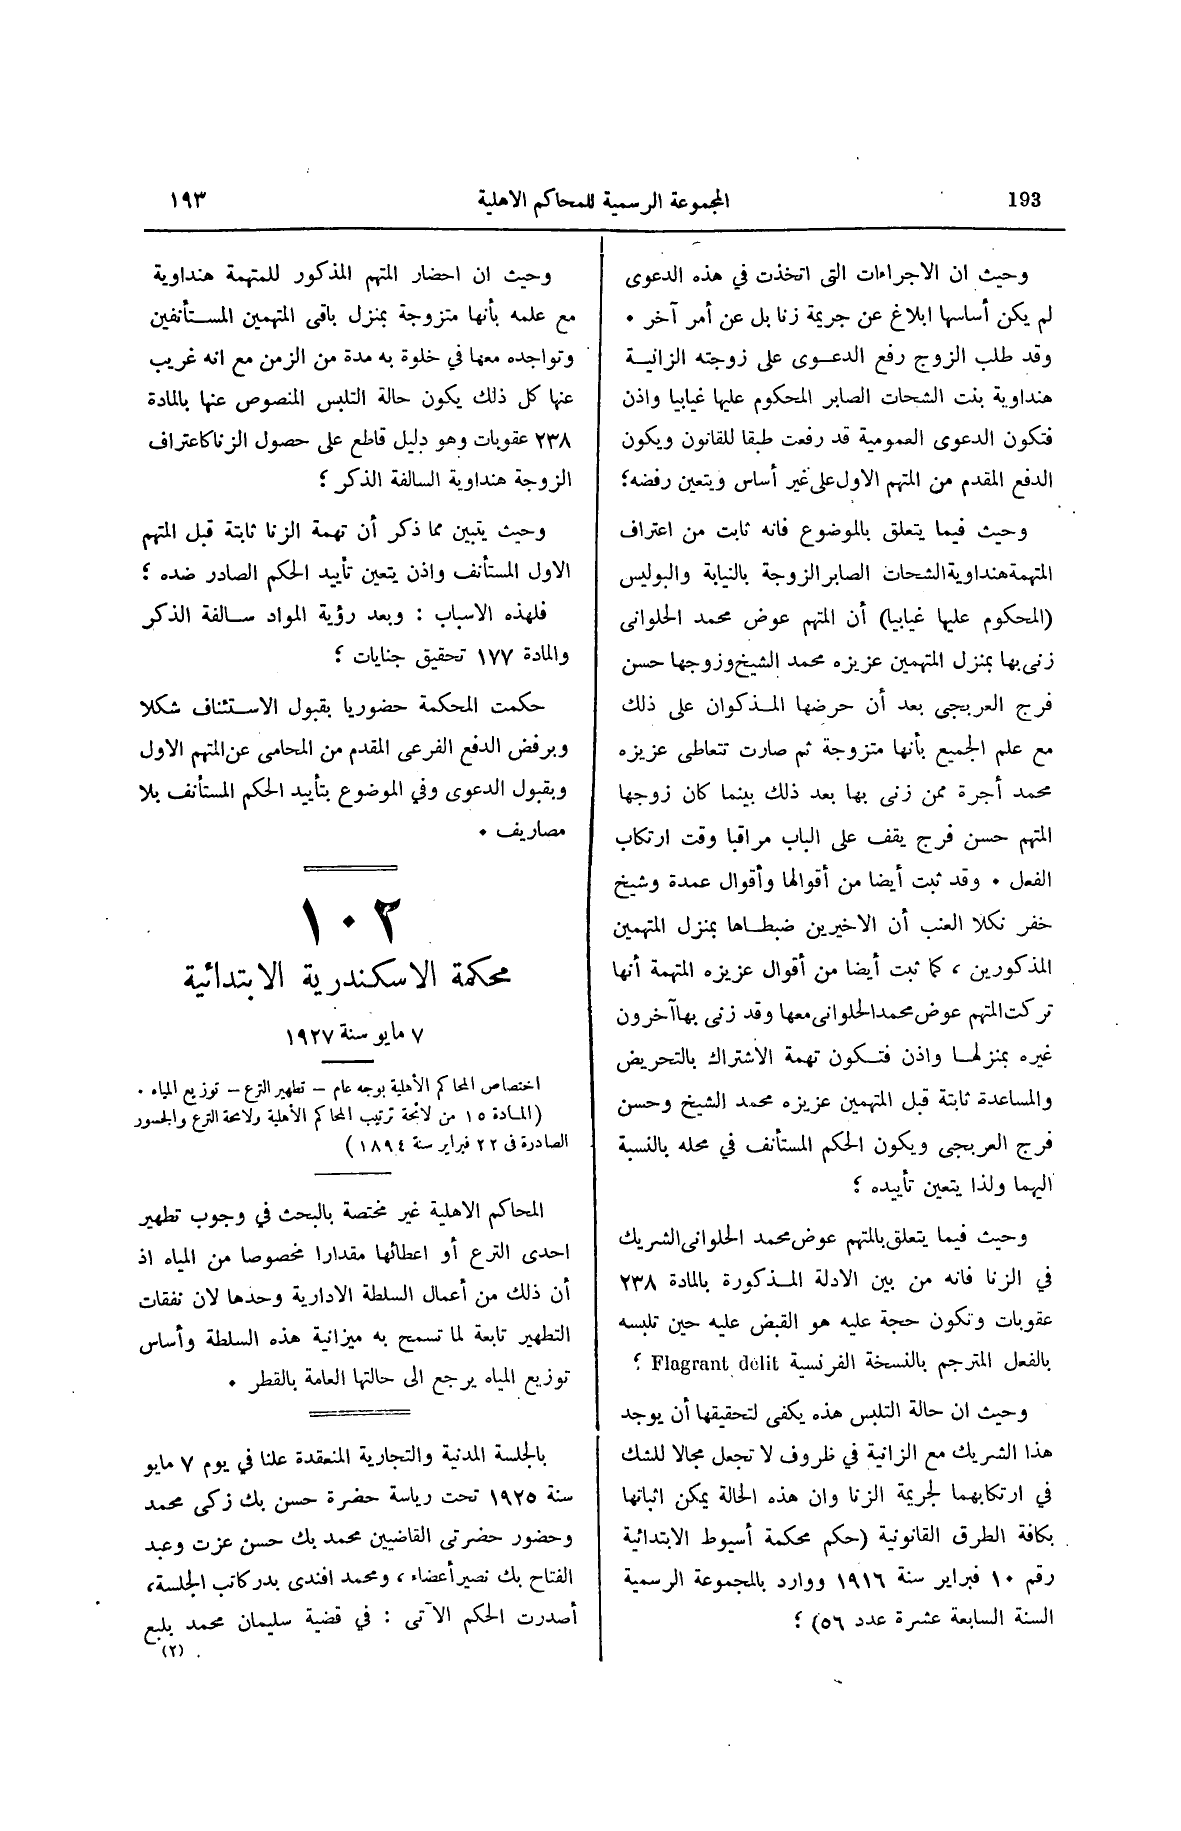 193
المجموعة الرسمية للمحاكم الاهلية
١٩٣
وحيث ان الاجراءات التى اتخذت في هذه الدعوى
لم يكن أساسها ابلاغ عن جريمة زنا بل عن أمر آخر ٠
وقد طلب الزوج رفع الدعوى على زوجته الزانية
هنداوية بنت الشحات الصابر المحكوم عليها غيابيا واذن
فتكون الدعوى العمومية قد رفعت طبقا للقانون ويكون
الدفع المقدم من المتهم الاول على غير أساس ويتعين رفضه ؛
وحيث فيما يتعلق بالموضوع فانه ثابت من اعتراف
المتهمة هنداوية الشحات الصابر الزوجة بالنيابة والبوليس
(المحكوم عليها غيابيا) أن المتهم عوض محمد الحلوانى
زنى بها بمنزل المتهمين عزيزه محمد الشيخ وزوجها حسن
فرج العربجى بعد أن حرضها المذكوان على ذلك
مع علم الجميع بأنها متزوجة ثم صارت تتعاطى عزيزه
محمد أجرة ممن زنى بها بعد ذلك بينما كان زوجها
المتهم حسن فرج يقف على الباب مراقبا وقت ارتكاب
الفعل ٠ وقد ثبت أيضا من أقوالها وأقوال عمدة وشيخ
خفر نكلا العنب أن الاخيرين ضبطاها بمنزل المتهمين
المذكورين ، كما ثبت أيضا من أقوال عزيزه المتهمة أنها
تركت المتهم عوض محمد الحلوانى معها وقد زنى بها آخرون
غيره بمنزلها واذن فتكون تهمة الاشتراك بالتحريض
والمساعدة ثابتة قبل المتهمين عزيزه محمد الشيخ وحسن
فرج العربجى ويكون الحكم المستأنف في محله بالنسبة
اليهما ولذا يتعين تأييده ؛
وحيث فيما يتعلق بالمتهم عوض محمد الحلوانى الشريك
في الزنا فانه من بين الادلة المذكورة بالمادة ٢٣٨
عقوبات وتكون حجة عليه هو القبض عليه حين تلبسه
بالفعل المترجم بالنسخة الفرنسية Flagrant délit ؛
وحيث ان حالة التلبس هذه يكفى لتحقيقها أن يوجد
هذا الشريك مع الزانية في ظروف لا تجعل مجالا للشك
في ارتكابهما لجريمة الزنا وان هذه الحالة يمكن اثباتها
بكافة الطرق القانونية (حكم محكمة أسيوط الابتدائية
رقم ١٠ فبراير سنة ١٩١٦ ووارد بالمجموعة الرسمية
السنة السابعة عشرة عدد ٥٦) ؛
وحيث ان احضار المتهم المذكور للمتهمة هنداوية
مع علمه بأنها متزوجة بمنزل باقى المتهمين المستأنفين
وتواجده معها في خلوة به مدة من الزمن مع انه غريب
عنها كل ذلك يكون حالة التلبس المنصوص عنها بالمادة
٢٣٨ عقوبات وهو دليل قاطع على حصول الزنا كاعتراف
الزوجة هنداوية السالفة الذكر ؛
وحيث يتبين مما ذكر أن تهمة الزنا ثابتة قبل المتهم
الاول المستأنف واذن يتعين تأييد الحكم الصادر ضده ؛
فلهذه الاسباب : وبعد رؤية المواد سالفة الذكر
والمادة ١٧٧ تحقيق جنايات ؛
حكمت المحكمة حضوريا بقبول الاستئناف شكلا
وبرفض الدفع الفرعى المقدم من المحامى عن المتهم الاول
وبقبول الدعوى وفي الموضوع بتأييد الحكم المستأنف بلا
مصاريف ٠
١٠٢
محكمة الاسكندرية الابتدائية
٧ مايو سنة ١٩٢٧
اختصاص المحاكم الأهلية بوجه عام – تطهير الترع – توزيع المياه ٠
(المادة ١٥ من لائحة ترتيب المحاكم الأهلية ولائحة الترع والجسور
الصادرة فى ٢٢ فبراير سنة ١٨٩٤)
المحاكم الاهلية غير مختصة بالبحث في وجوب تطهير
احدى الترع أو اعطائها مقدارا مخصوصا من المياه اذ
أن ذلك من أعمال السلطة الادارية وحدها لان نفقات
التطهير تابعة لما تسمح به ميزانية هذه السلطة وأساس
توزيع المياه يرجع الى حالتها العامة بالقطر ٠
بالجلسة المدنية والتجارية المنعقدة علنا في يوم ٧ مايو
سنة ١٩٢٥ تحت رياسة حضرة حسن بك زكى محمد
وحضور حضرتى القاضيين محمد بك حسن عزت وعبد
الفتاح بك نصير أعضاء ، ومحمد افندى بدر كاتب الجلسة،
أصدرت الحكم الآتى : في قضية سليمان محمد بلبع
(٢)